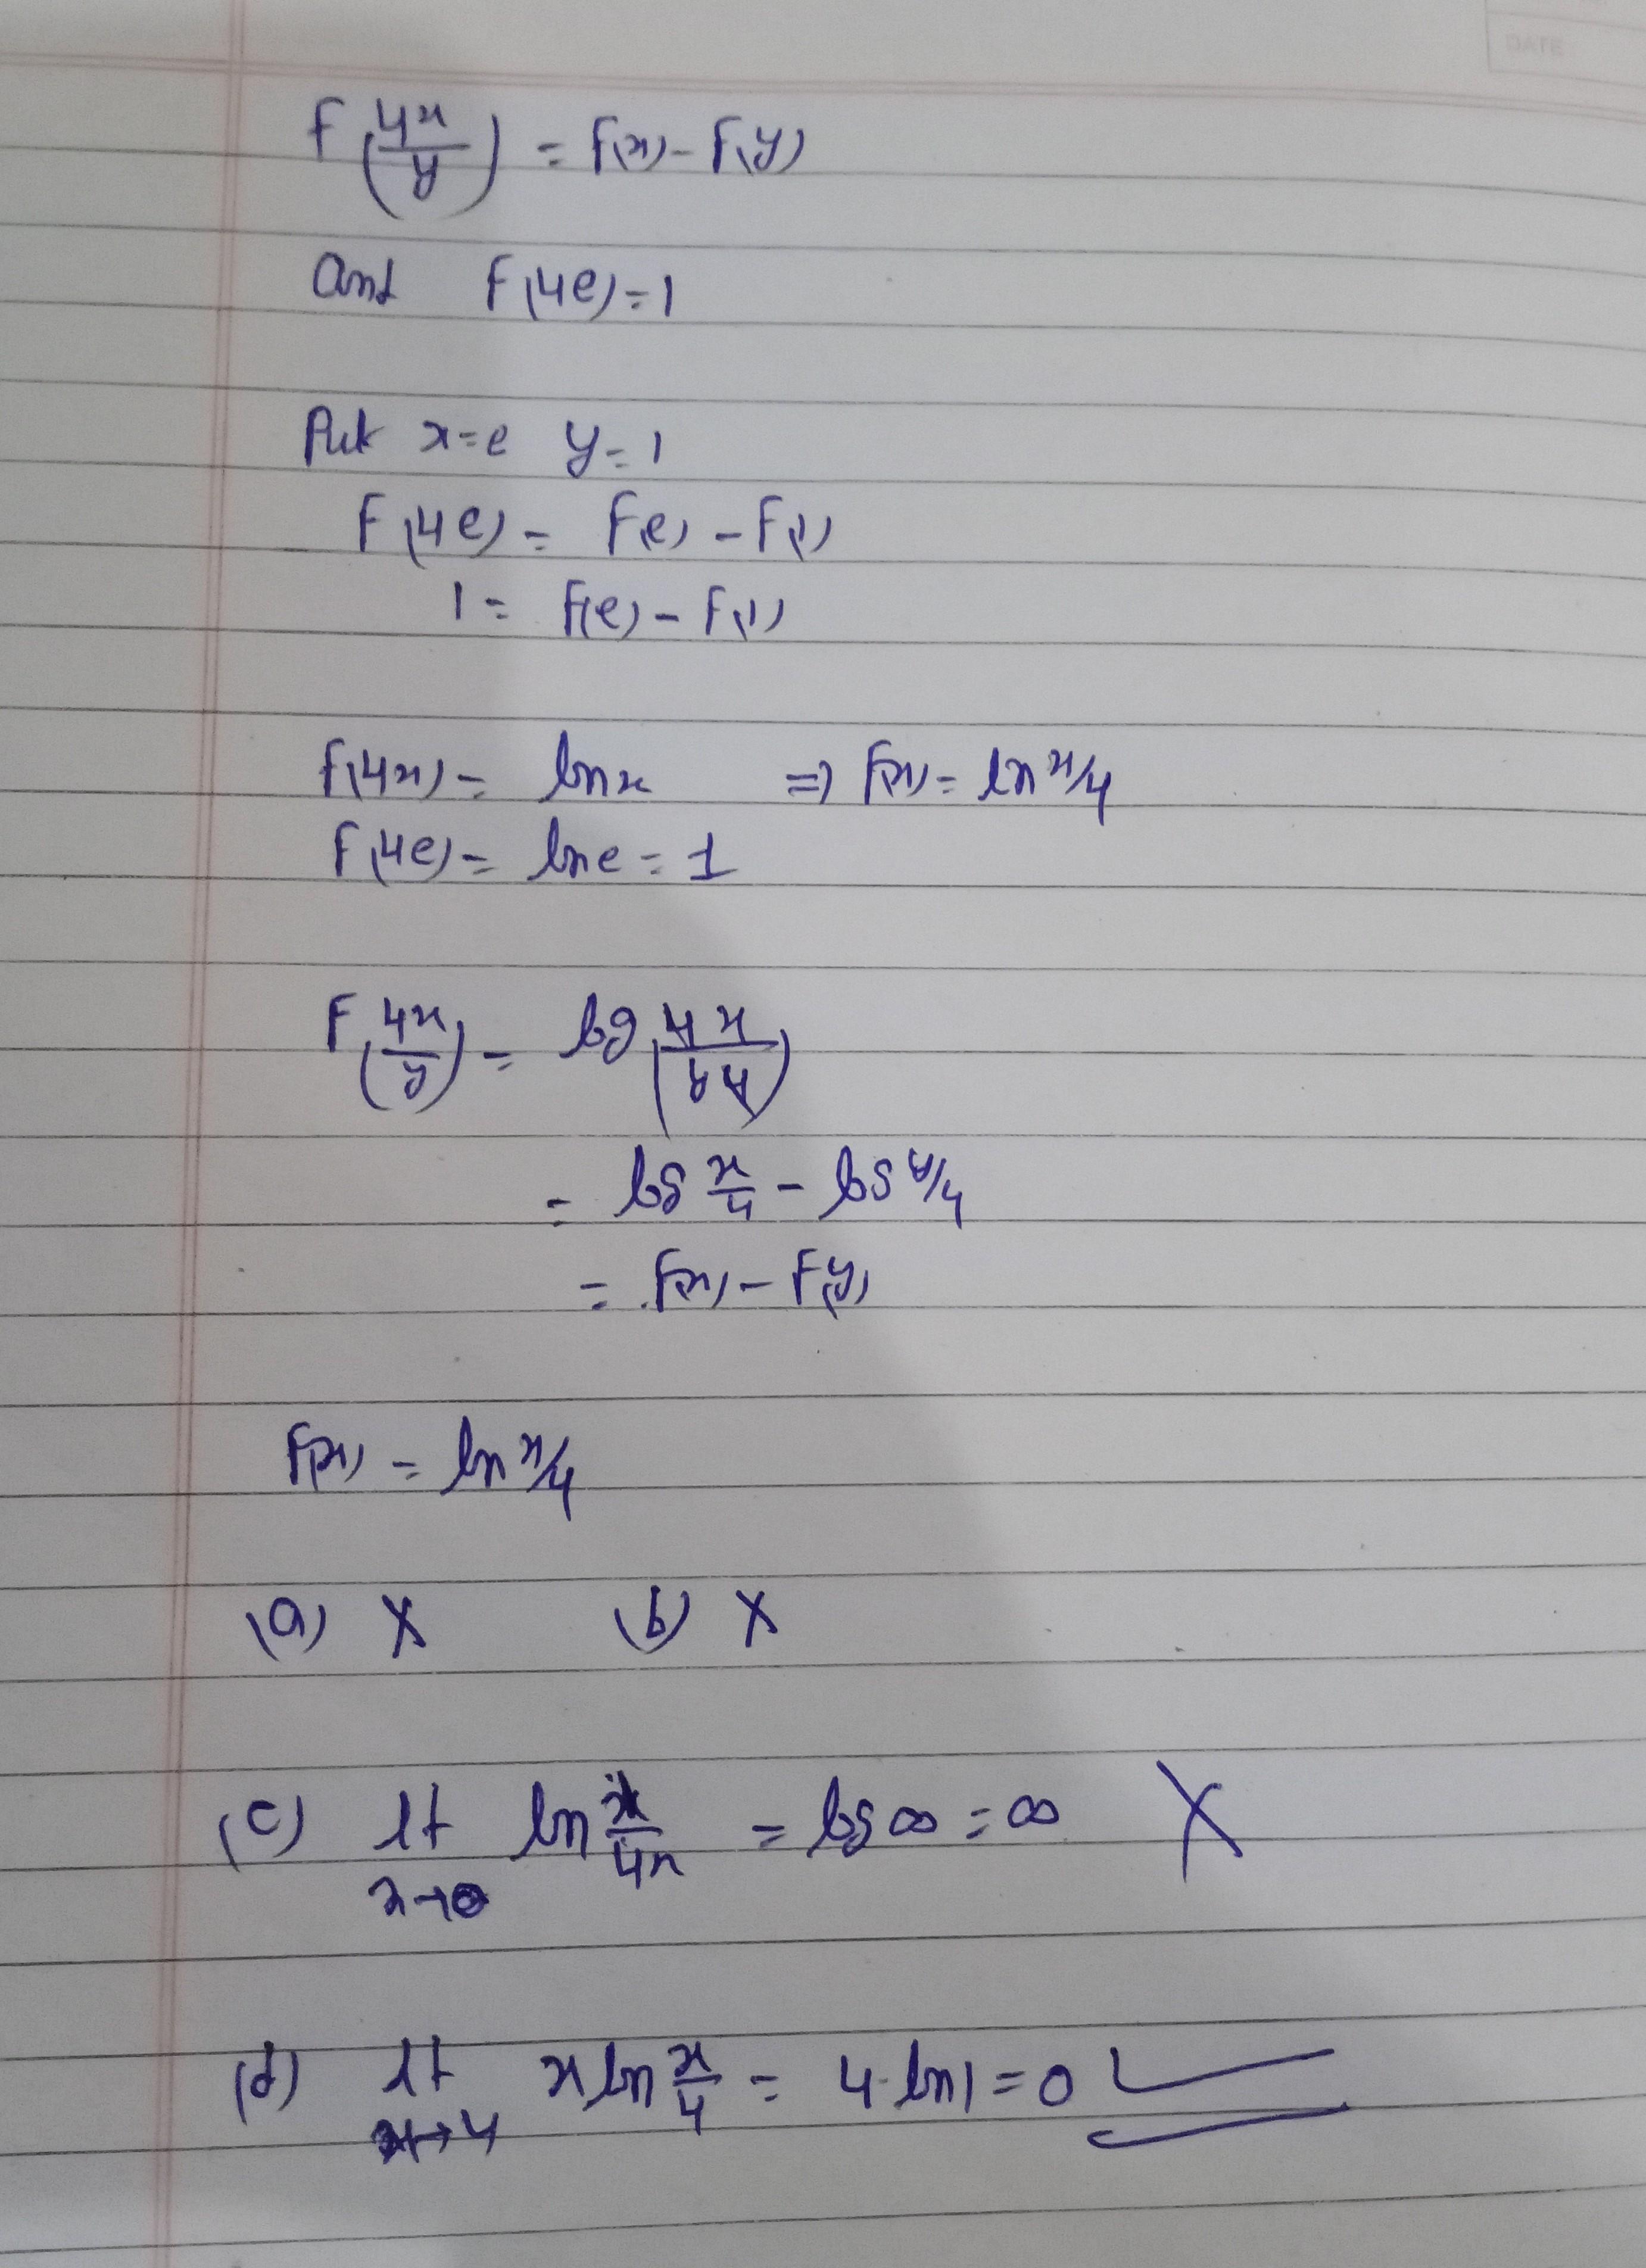 DATE
F(4x/y) = F(x) - F(y)
And F(4e) = 1
Put x=e y=1
F(4e) = F(e) - F(1)
1 = F(e) - F(1)
F(4x) = ln x ⇒ F(x) = ln x/4
F(4e) = ln e = 1
F(4x/y) = log(4x/y4)
= log x/4 - log y/4
= F(x) - F(y)
F(x) = ln x/4
(a) X (b) X
(c) lt x→0 ln 1/4x = log ∞ = ∞ X
(d) lt x→4 x ln x/4 = 4·ln1 = 0 ✓